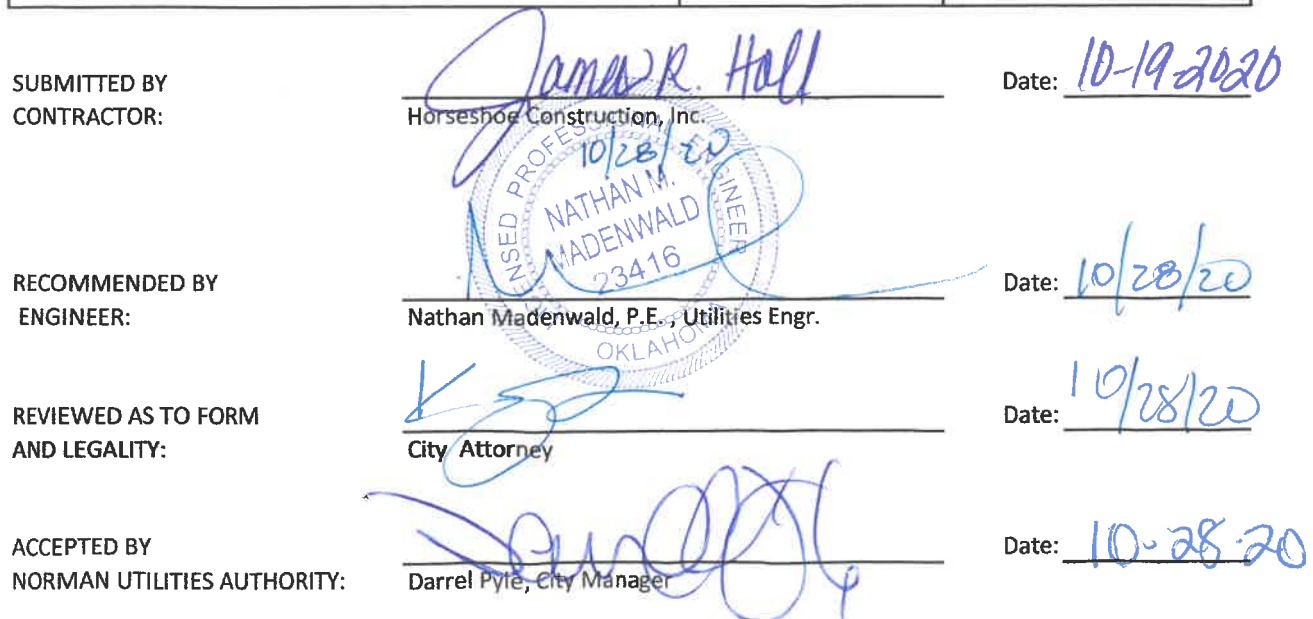 SUBMITTED BY
CONTRACTOR:
James R. Hall
Horseshoe Construction, Inc.
Date: 10-19-2020
LICENSED PROFESSIONAL ENGINEER
10/28/20
NATHAN M.
MADENWALD
23416
OKLAHOMA
RECOMMENDED BY
ENGINEER:
Nathan Madenwald, P.E. , Utilities Engr.
Date: 10/28/20
REVIEWED AS TO FORM
AND LEGALITY:
City Attorney
Date: 10/28/20
ACCEPTED BY
NORMAN UTILITIES AUTHORITY:
Darrel Pyle, City Manager
Date: 10-28-20